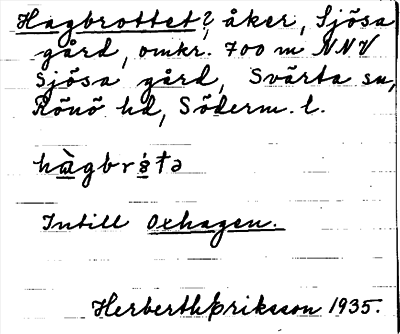 Hagbrottet?, åker, Sjösa
gård, omkr. 700 m NNV
Sjösa gård, Svärta sn,
Rönö hd, Söderm. l.
Intill Oxhagen.
Herberth Eriksson 1935.